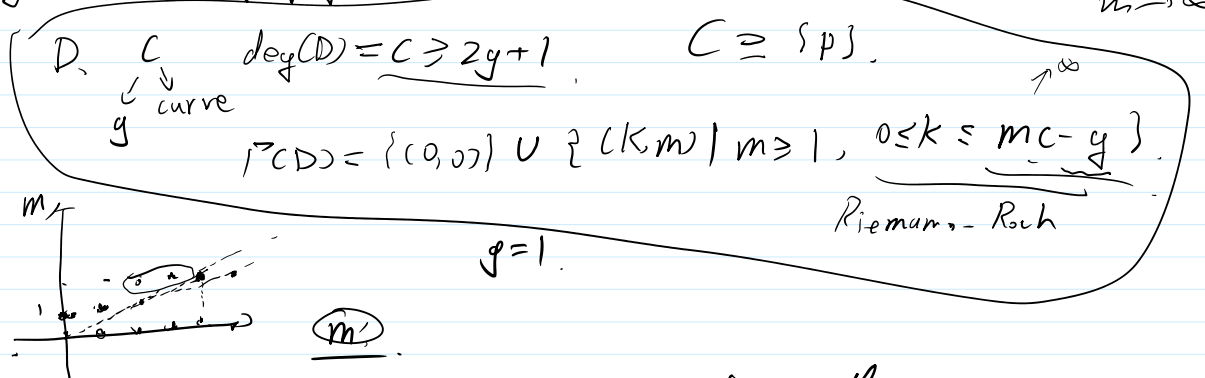 m → ∞
D, C deg(D) = C ≥ 2g+1. C ⊇ {p}.
g curve
∞
Γ(D) = {(0,0)} ∪ {(k,m) | m ≥ 1, 0 ≤ k ≤ mc - g}.
Riemann-Roch
m
g = 1.
1
m